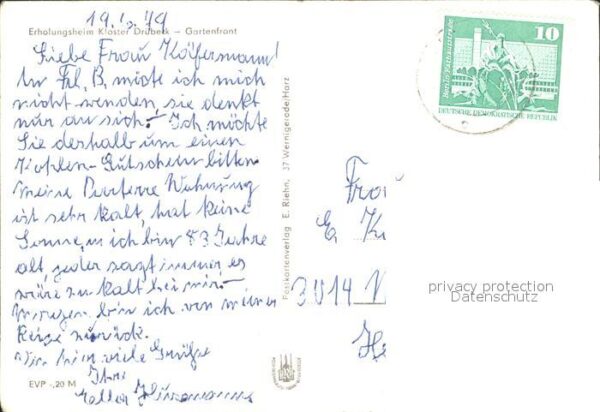 19.6.79
Erholungsheim Kloster Drübeck – Gartenfront
Liebe Frau Käfermann!
An Frl. B. möte ich mich
nicht wenden, sie denkt
nur an sich! Ich möchte
Sie deshalb um einen
Kohlen-Gutschein bitten
meine Parterre Wohnung
ist sehr kalt, hat keine
Sonne, u. ich bin 83 Jahre
alt, jeder sagt immer es
wäre zu kalt bei mir.
Morgen bin ich von meiner
Reise zurück.
viele Grüße
Ihre
EVP -,20 M
Postkartenverlag E. Riehn, 37 Wernigerode/Harz
10
Berlin, Neptunbrunnen
DEUTSCHE DEMOKRATISCHE REPUBLIK
Frau
E. K
3014
privacy protection
Datenschutz